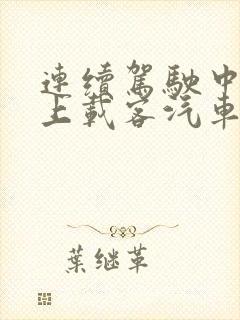 連續駕駛中
上載客汽車
葉继革